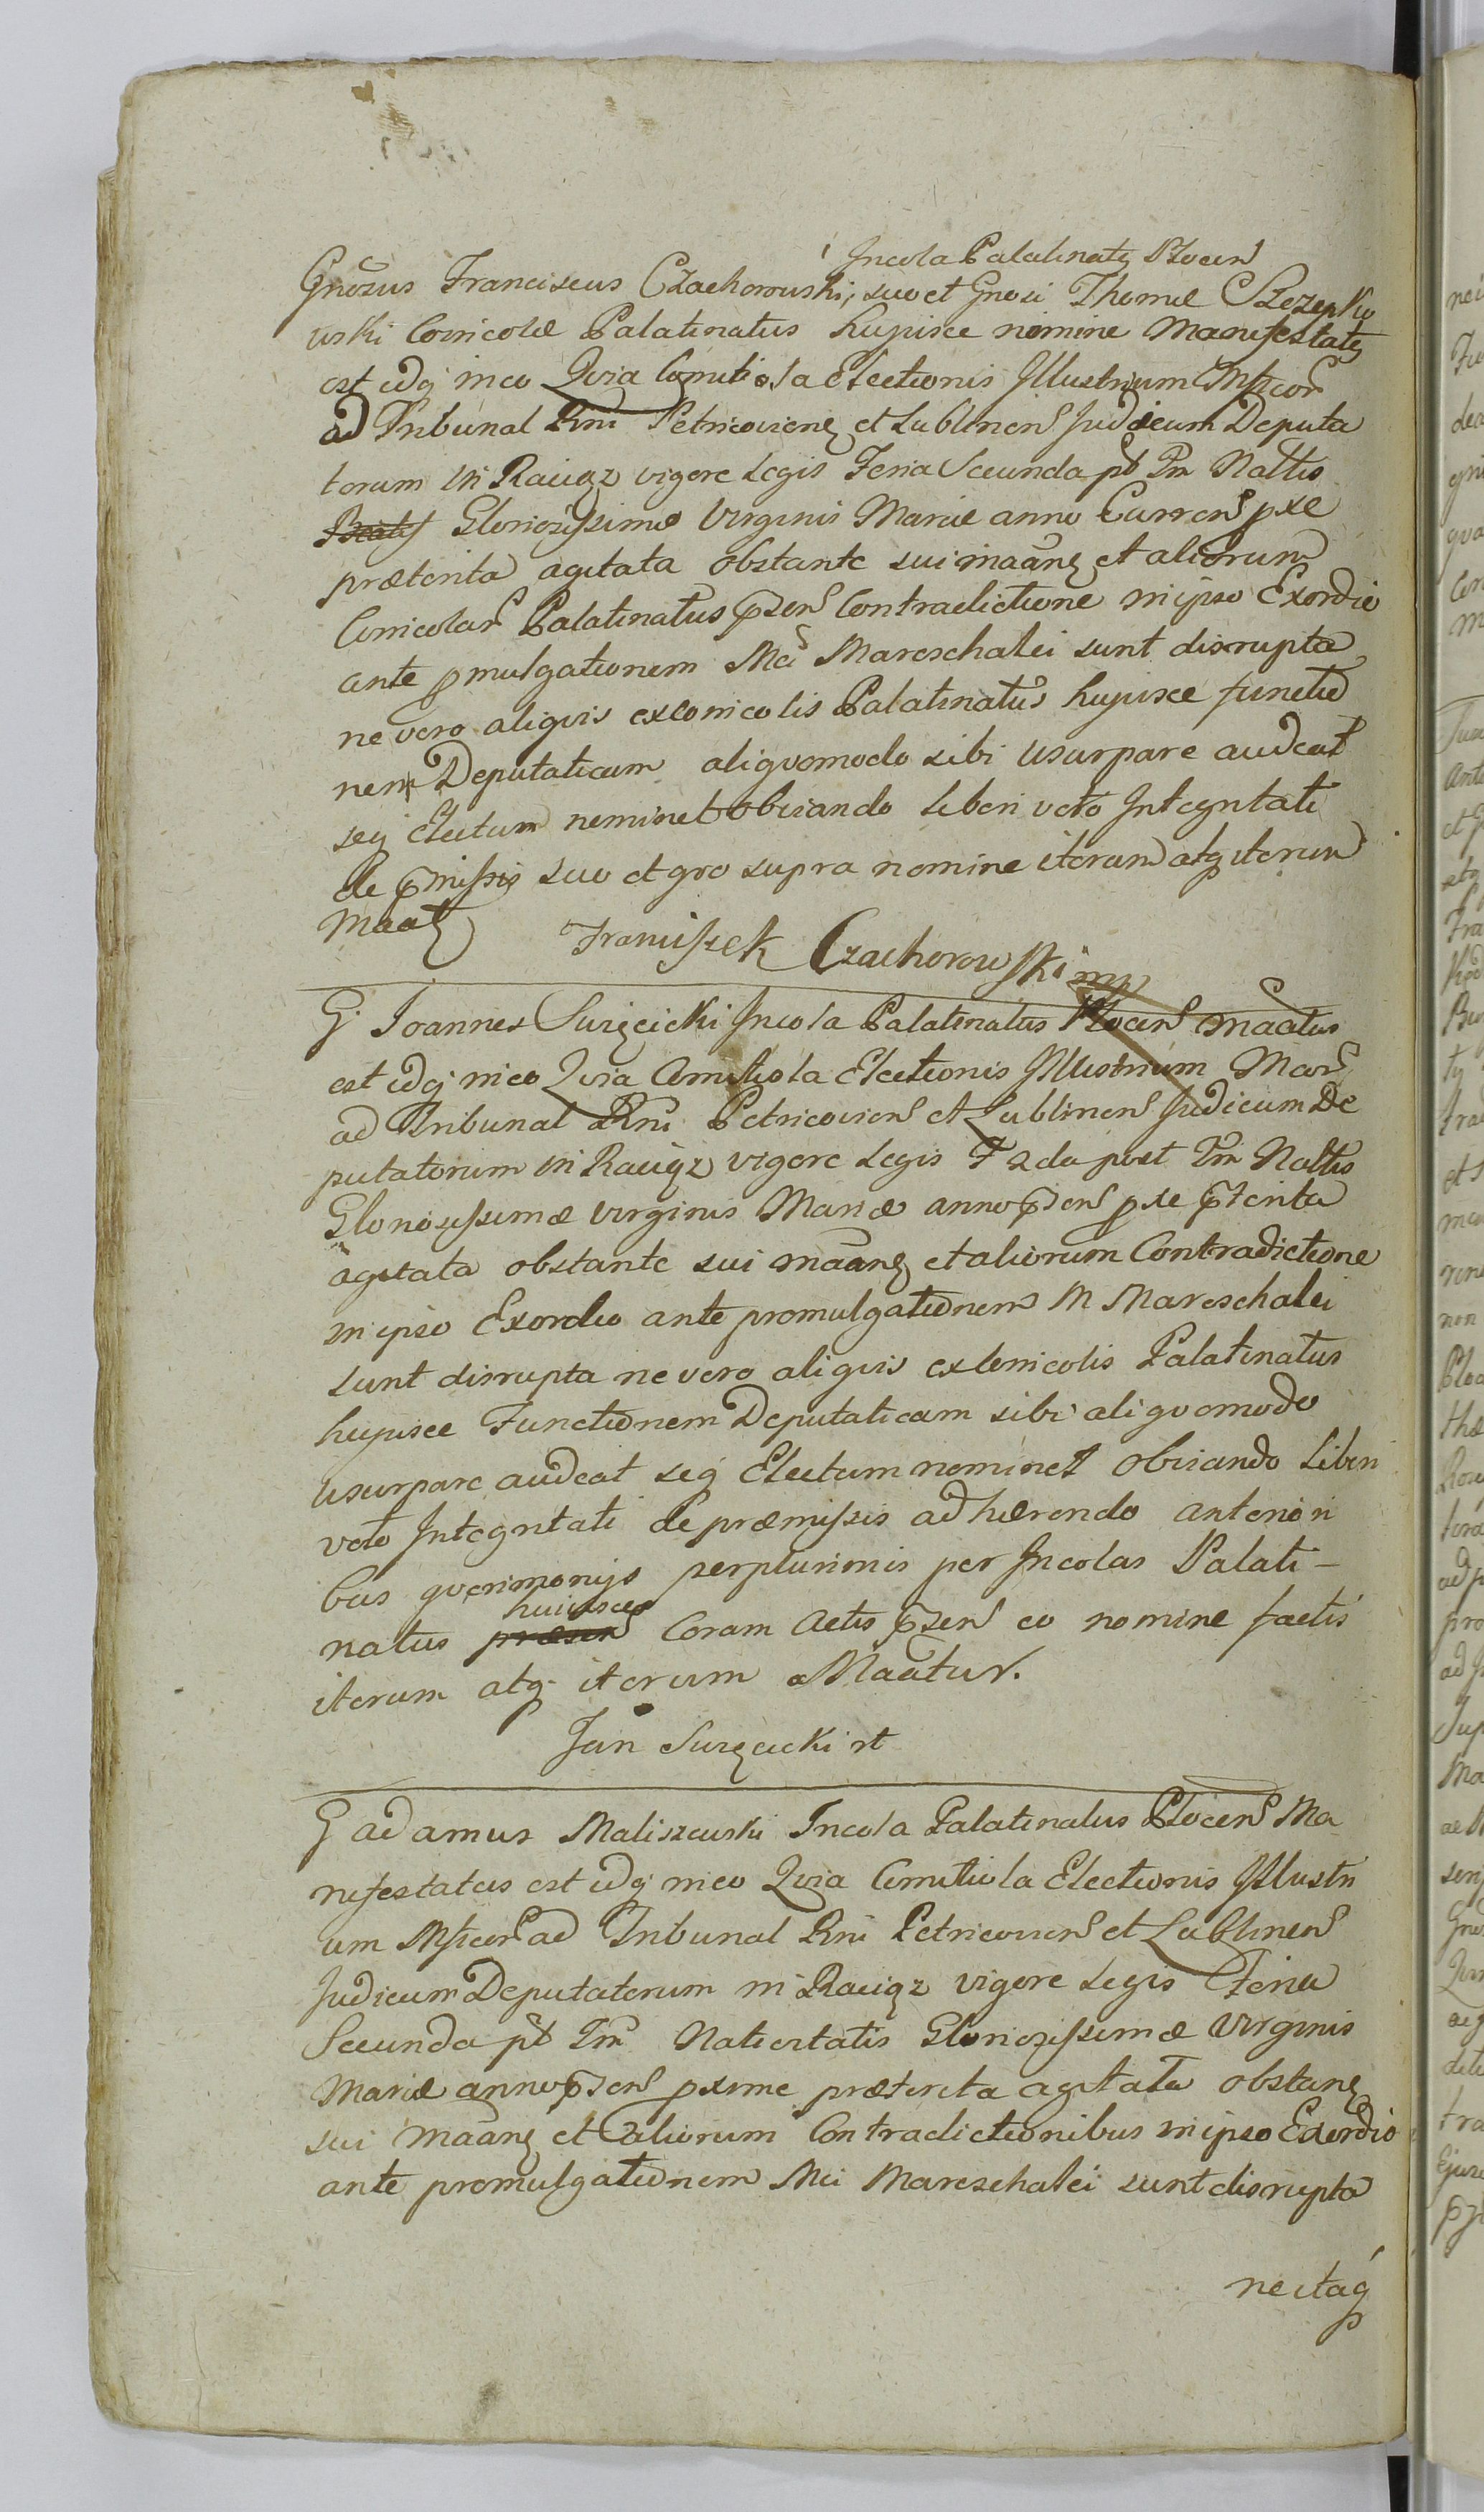 Incola Palatinatꝰ Plocen
Gnõsus Franciscus Czachorowski, suo et Gnosi Thomæ Szczepko
wski Conicolæ Palatinatus hujusce nomine Manifestatꝰ
est idq in eo Quia Comitiola Electionis Illustrium Mficor
ad Tribunal Rni Petricovien et Lublinen Judicum Deputa
torum in Raciąz vigore Legis Feria Secunda pt Fm Nattis
Gloriosissimæ Virginis Mariæ anno Curren pxe
præterita agitata obstante sui maãn et aliorum
Conicolar Palatinatus pszen Contradictione in ipso Exordio
ante pmulgationem Mci Mareschalci sunt disrupta
ne vero aliquis ex Conicolis Palatinatus hujusce functio
nem Deputaticam aliquomodo sibi usurpare audeat
seq Electum neminet obviando liberi veto Integritati
de pmissis suo et quo supra nomine iterum atq iterum
Maat
Franciszek Czachorowski mp
G Joannes Surzęcicki Incola Palatinatus Plocen maãtus
est idq in eo Quia Comitiola Electionis Illustrium Mcor
ad Tribunal Rni Petricovien et Lublinen Judicum De
putatorum in Raciąz vigore Legis F 2da post Fm Nattis
Gloriosissimæ Virginis Mariæ anno pszen pxe pterita
agitata obstante sui maãn et aliorum Contradictione
in ipso Exordio ante promulgationem M Mareschalci
sunt disrupta ne vero aliquis ex Conicolis Palatinatus
hujusce Functionem Deputaticam sibi aliquomodo
usurpare audeat seq Electum neminet obviando Liberi
veto Integritati de præmissis adhærendo anteriori
bus querimonijs perplurimis per Incolas Palati-
huiusce
natus præsen Coram Actis pszen eo nomine factis
iterum atq iterum Maãtur.
Jan Surzęcicki rt
G Adamus Maliszewski Incola Palatinatus Plocen Ma
nifestatus est idq in eo Quia Comitiola Electionis Illustri
um Mficor ad Tribunal Rni Petricovien et Lublinen
Judicum Deputatorum in Raciąz vigore Legis Feria
Secunda pt Fm Nativitatis Gloriosissimæ Virginis
Mariæ anno pszen pxime præterita agitata obstan
sui maãn et aliorum Contradictionibus in ipso Exordio
ante promulgationem Mci Mareschalci sunt disrupta
ne itaq